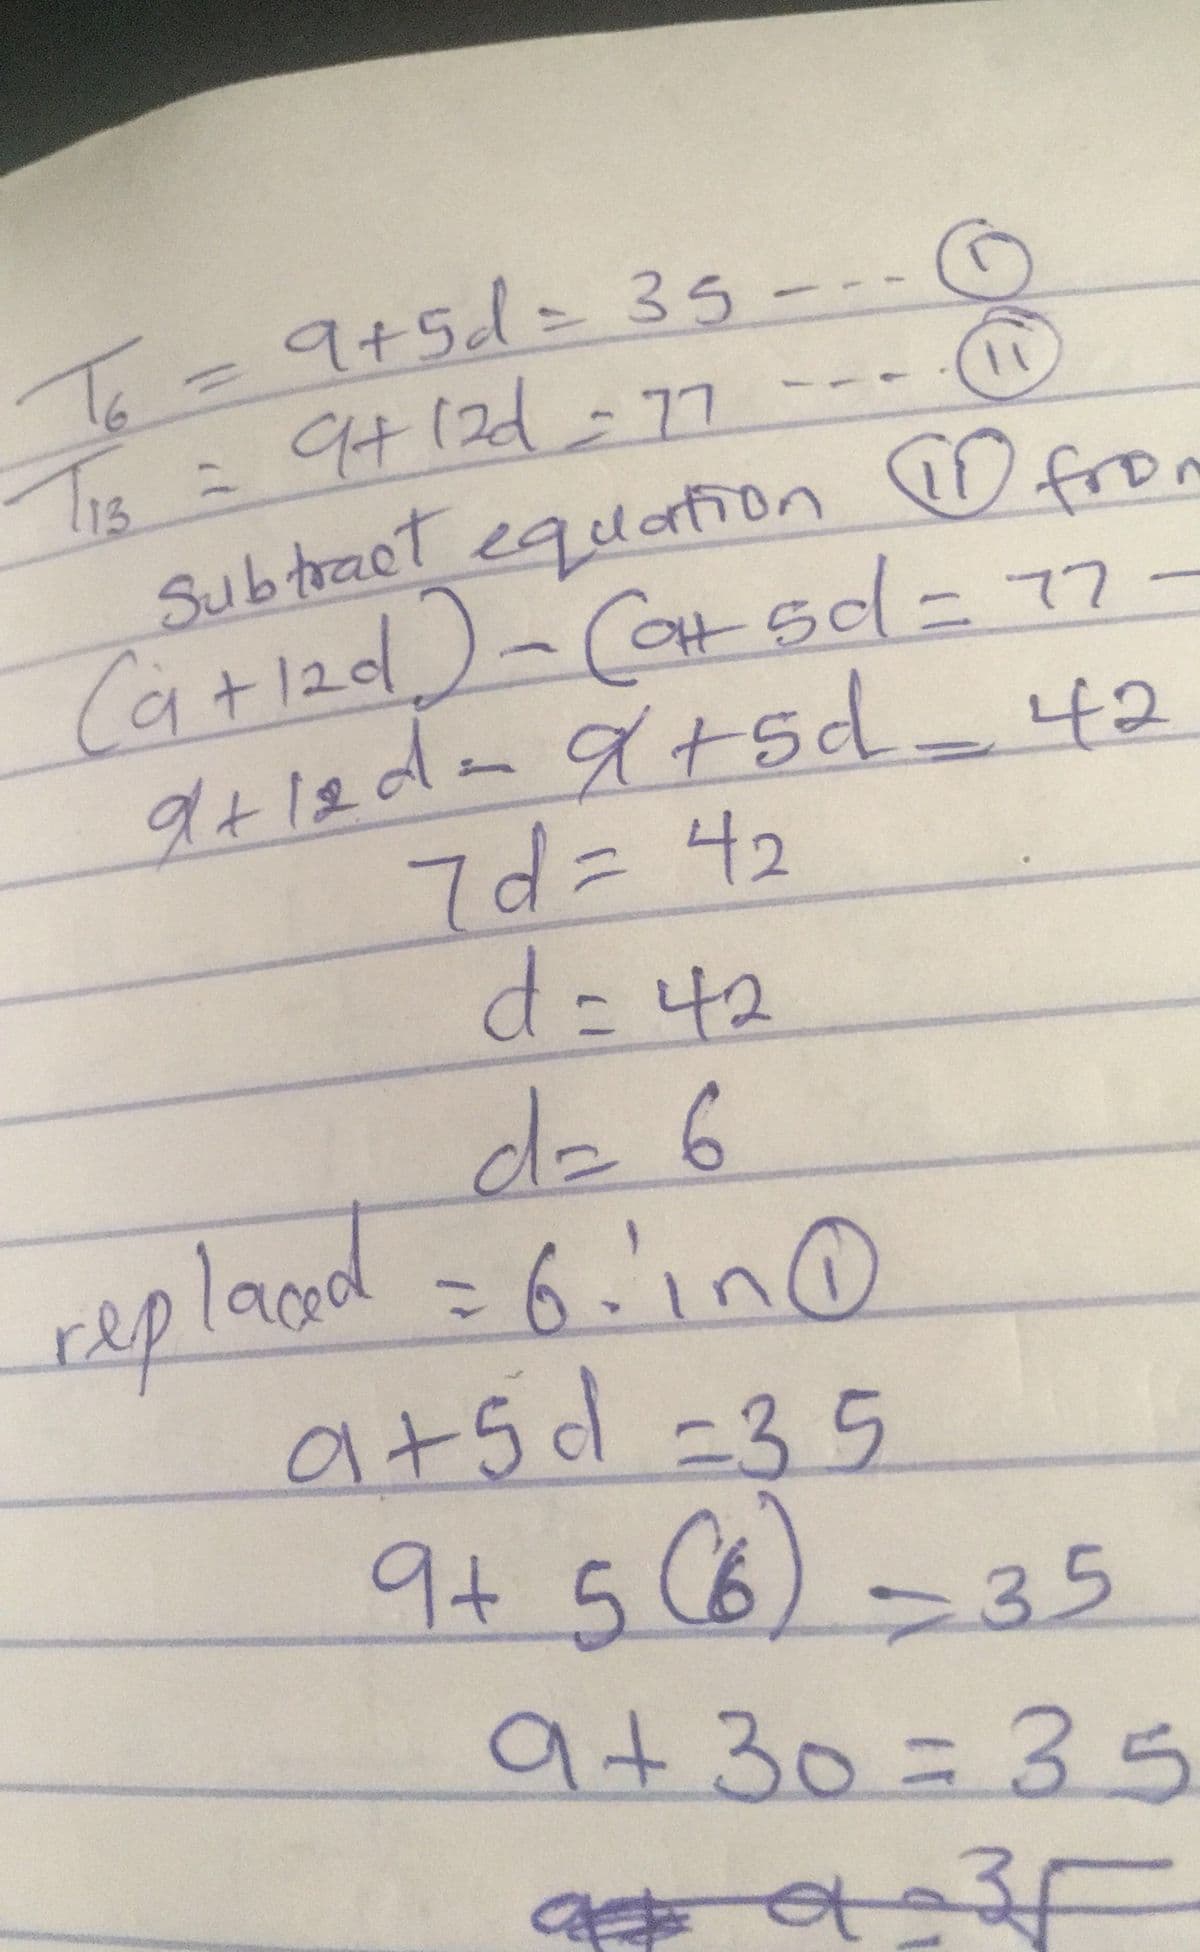 T6 = a+5d = 35 --- (i)
T13 = a+12d = 77 ---- (ii)
Subtract equation (ii) from
(a+12d) - (a+5d = 77 -
a+12d - a+5d = 42
7d = 42
d = 42
d = 6
replaced = 6 in (i)
a+5d = 35
a+ 5(6) = 35
a+ 30 = 35
a = 35